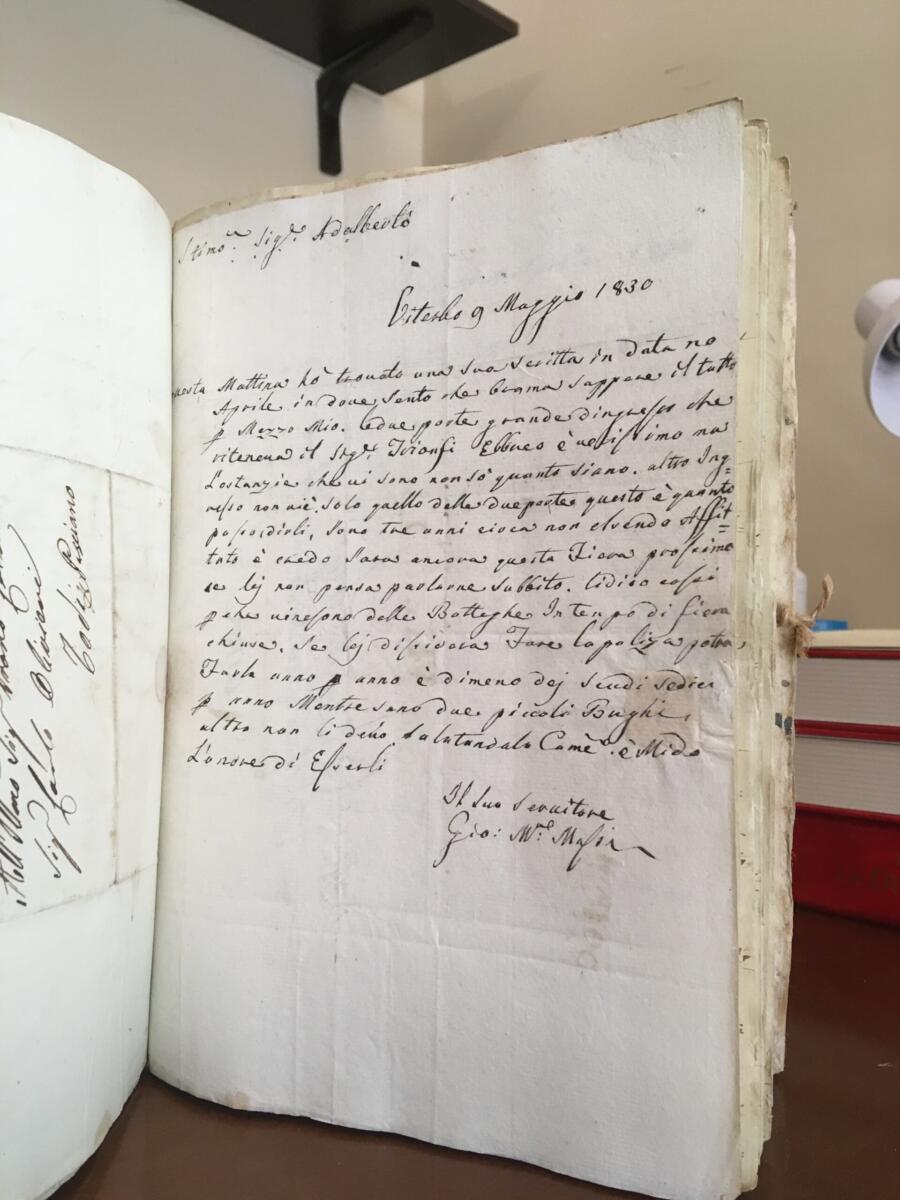 Stimo: Sig.r Adalberto
Viterbo 9 Maggio 1830
questa Mattina hò trovato una sua scritta in data no
Aprile in dove sento che brama sappere il tutto
p Mezzo Mio. le due porte grande dingresso che
riteneva il Sig.r Trionfi Ebbuco è verissimo ma
Lostanzie che vi sono non sò quanto siano. altro Ing=
resso non viè. solo quello delle due porte questo è quanto
posso dirli, sono tre anni cioca non essendo Affit=
tato è credo sara ancora questa Fiera prossima
se lej non pensa parlarne subbito. lidico cossi
p che vinesono delle Botteghe In tempo di fiera
chiuse. Se lej disidera Fare lapoliza potra
Farla anno p anno è dimeno dej Scudi Sedici
p anno Mentre sono due piccoli Bughi,
altro non li devo salutandola Carne: è Mido
L'onore di Esserli
Il suo Servitore
Gio: M.a Masin
All'Illmo Sig
Sig Carlo Olivieri